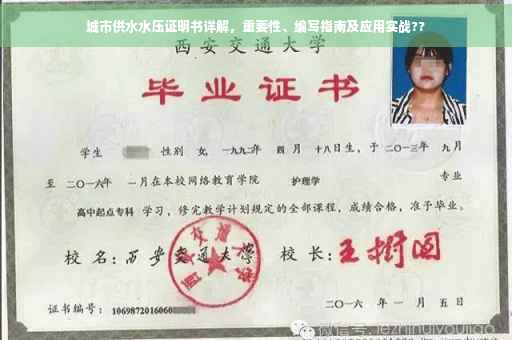 城市供水水压证明书详解，重要性、编写指南及应用实战??
西安交通大学
毕业证书
学生 性别 女，一九九二年 四月 十八日生，于二〇一三年 九月
至 二〇一六年 一月在本校网络教育学院 护理学 专业
高中起点专科 学习，修完教学计划规定的全部课程，成绩合格，准予毕业。
校 名：西安交通大学 校 长：王树国
西安交通大学
证书编号： 1069872016060
二〇一六 年 一 月 五 日
微信号: jiezhinuiyoujiao